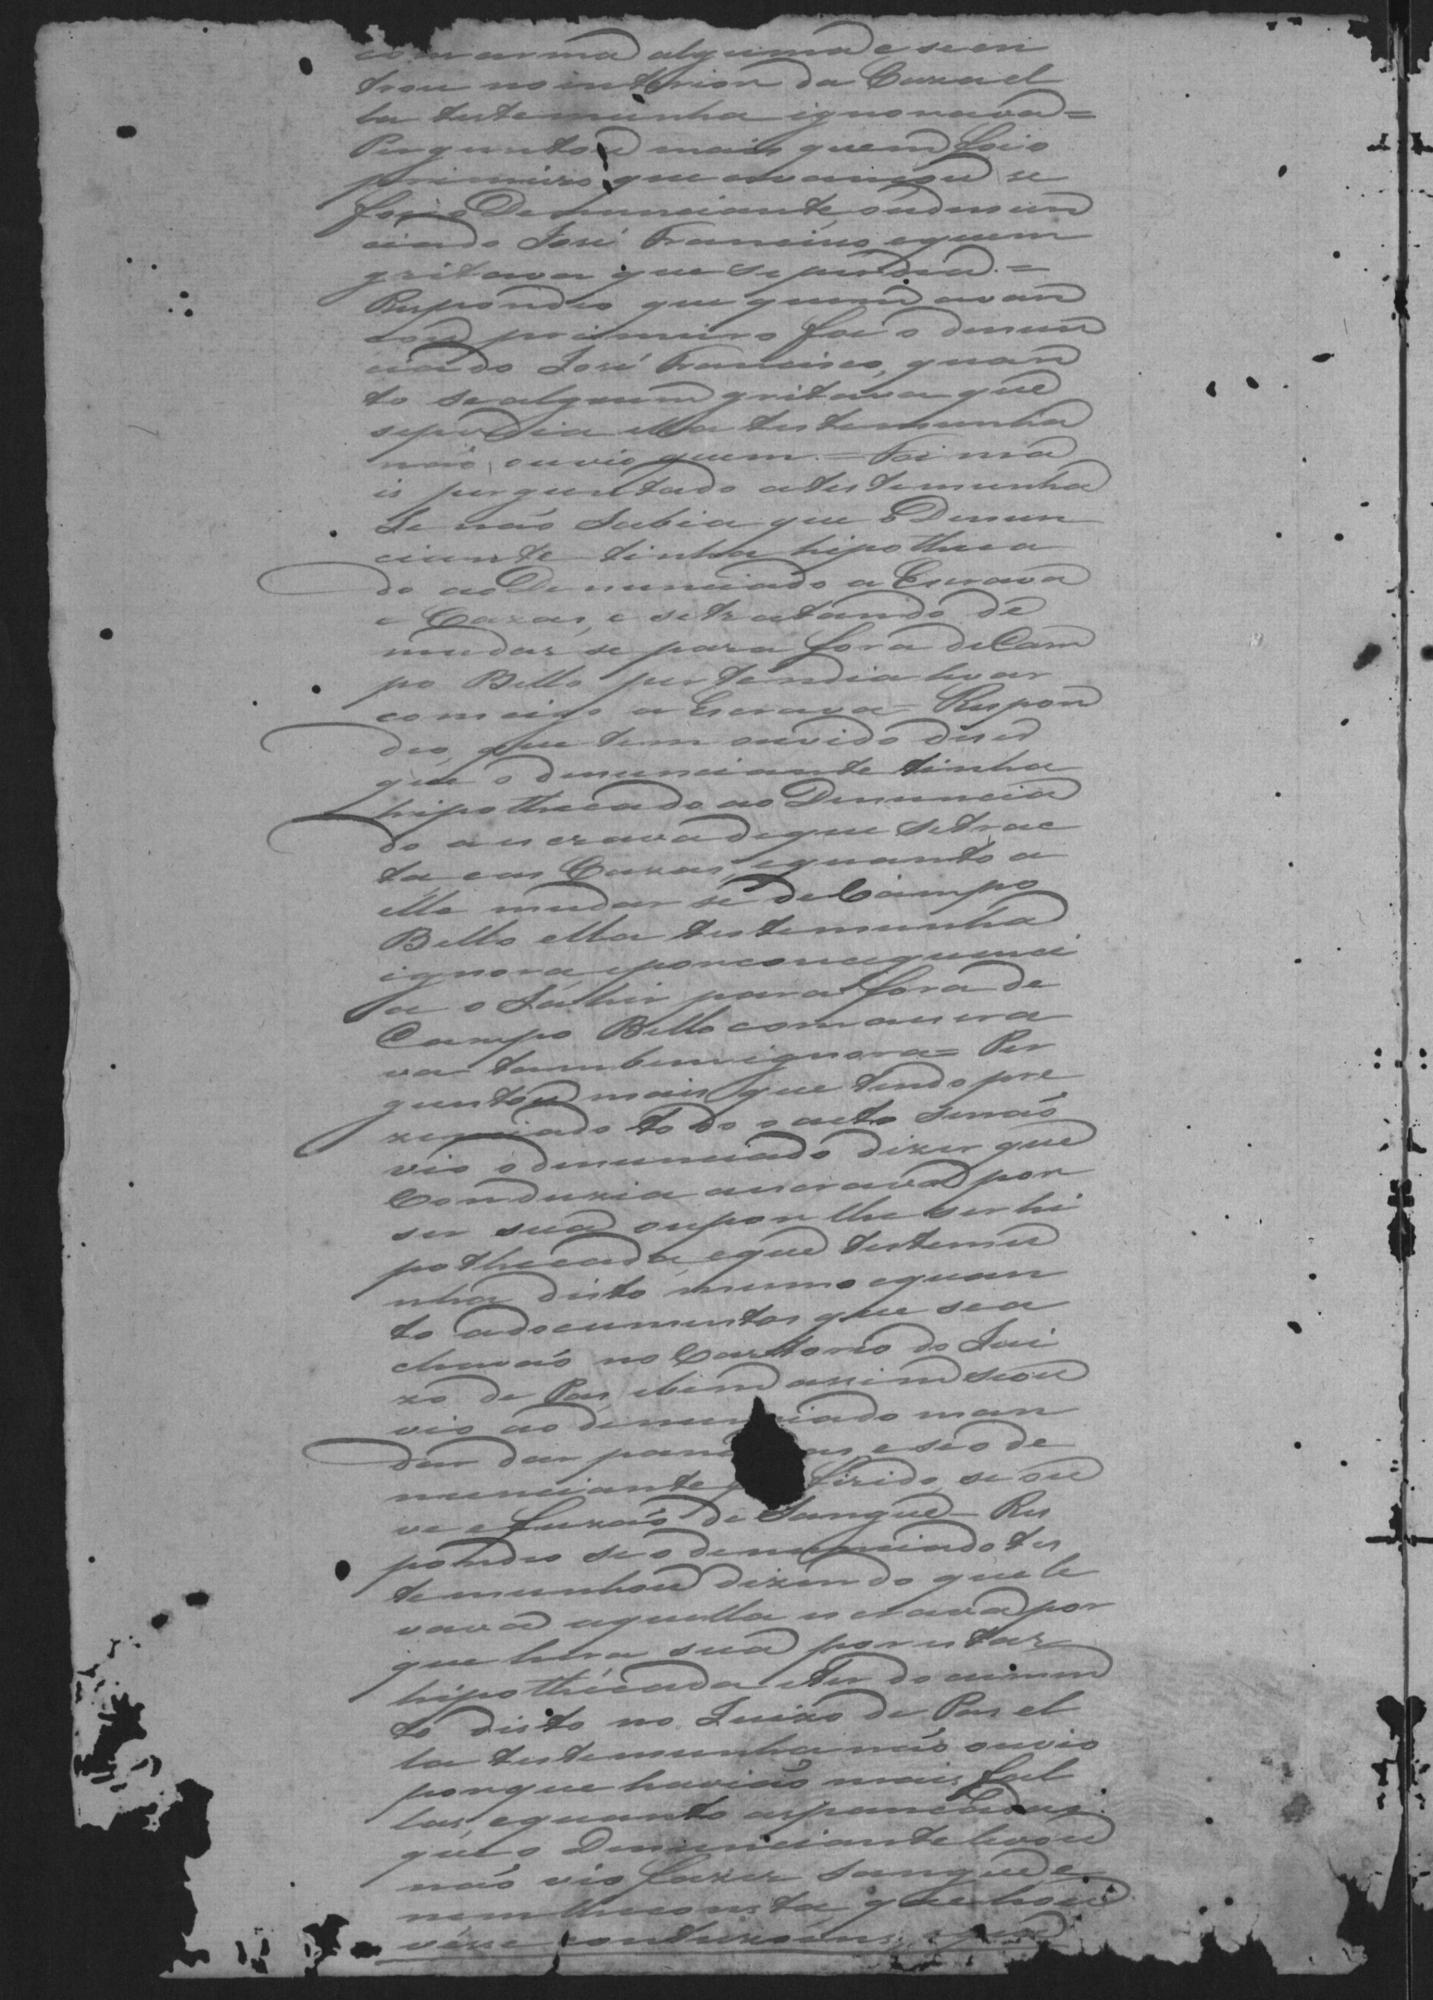 com arma alguma e se en
trou no interior da Caza el
la testemunha ignorava =
Perguntou mais quem foi o
primeiro que avançou se
foi o Denunciante, ou denun
ciado José Francisco, e quem
gritava que se perdia. =
Respondeo que quem avan
çou primeiro foi o denun
ciado José Francisco, quan
to se alguem gritava que
se perdia ella testemunha
não ouvio quem. = Foi ma
is perguntado a testemunha
Se não Sabia que o Denun
ciante tinha hipotheca
do ao Denunciado a Escrava
e Cazas, e se tratando de
mudar se para fora de Cam
po Bello pertendia levar
comsigo a Escrava = Respon
deo, que tem ouvido diser
que o denunciante tinha
hipothecado ao Denuncia
do a escrava de que se trac
ta e as Cazas, e quanto a
elle mudar se de Campo
Bello ella testemunha
ignora, e por consequenci
a o Sahir para fora de
Campo Bello com a escra
va tambem ignora = Per
guntou mais que tendo pre
zenciado todo o acto se não
vio o denunciado dizer que
Conduzia a escrava por
ser sua ou por lhe ser hi
pothecada, e que testemu
nha disto mesmo e quan
to a documentos que se a
chavão no Cartorio do Jui
zo de Pas, e bem assim se ou
vio ao denunciado man
dar dar e se o de
nunciante ferido, se ou
ve efuzão de Sangue = Res
pondeo se o denunciado tes
temunhou dizendo que le
vava aquella escrava por
que hera sua por estar
hipothecada e ter documen
to disto no Juizo de Pas el
la testemunha não ouvio
porque havião mais fal
las, e quanto as pancadas
que o Denunciante levou
não vio fazer sangue e
nem lhe consta que hou
vesse contuzoens, e